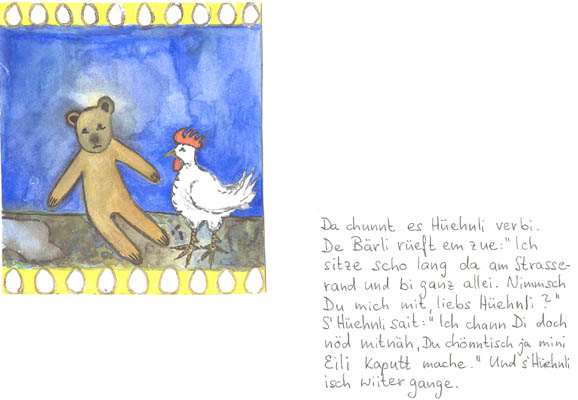 Da chunnt es Hüehnli verbi.
De Bärli rüeft em zue: "Ich
sitze scho lang da am Strasse-
rand und bi ganz allei. Nimmsch
Du mich mit, liebs Hüehnli?"
S'Hüehnli sait: "Ich chann Di doch
nöd mitnäh, Du chönntisch ja mini
Eili kaputt mache." Und s'Hüehnli
isch wiiter gange.